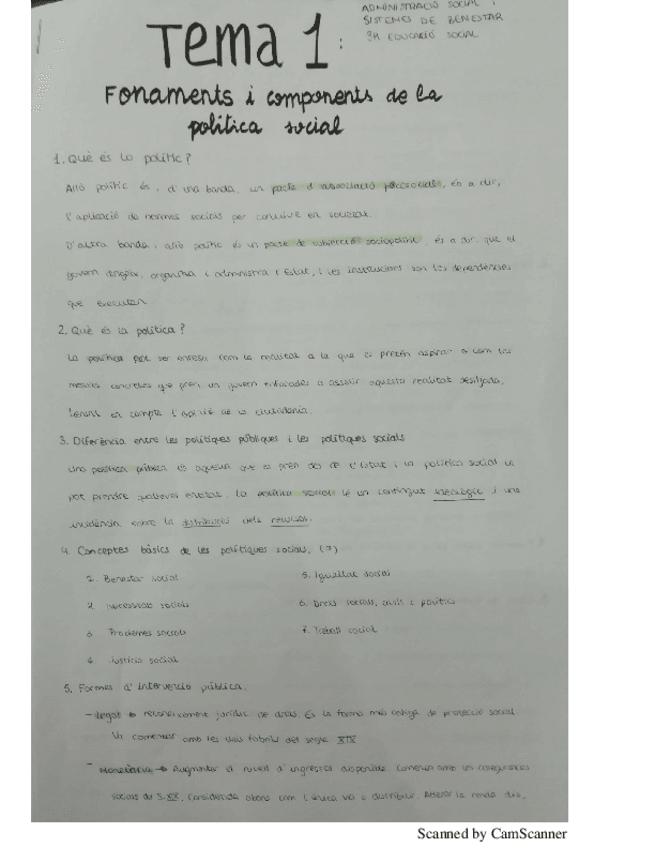 ADMINISTRACIÓ SOCIAL I
SISTEMES DE BENESTAR
3R EDUCACIÓ SOCIAL
Tema 1:
Fonaments i components de la
política social
1. Què és lo polític?
Allò polític és, d'una banda, un pacte d'associació, és a dir,
l'aplicació de normes socials per conviure en societat.
D'altra banda, allò polític és un pacte de subjecció sociopolític, és a dir, que el
govern dirigeix, organitza i administra l'Estat, i les institucions són les dependències
que executen
2. Què és la política?
La política pot ser entesa com la realitat a la que es pretén aspirar o com les
mesures concretes que pren un govern enfocades a assolir aquesta realitat desitjada,
tenint en compte l'opinió de la ciutadania.
3. Diferència entre les polítiques públiques i les polítiques socials
Una política pública és aquella que es pren des de l'Estat i un política social la
pot prendre qualsevol entitat. La política social té un contingut ideològic i una
incidència sobre la distribució dels recursos.
4. Conceptes bàsics de les polítiques socials. (7)
1. Benestar social
2. Necessitats socials
3. Problemes socials
4. Justícia social
5. Igualtat social
6. Drets socials, civils i polítics
7. Treball social
5. Formes d'intervenció pública.
- Legal → reconeixement jurídic de drets. És la forma més antiga de protecció social.
Va començar amb les lleis fabrils del segle XIX
- Monetària → Augmentar el nivell d'ingressos disponible. Comença amb les assegurances
socials del S.XIX. Considerada abans com l'única via a distribuir. la renda
Scanned by CamScanner